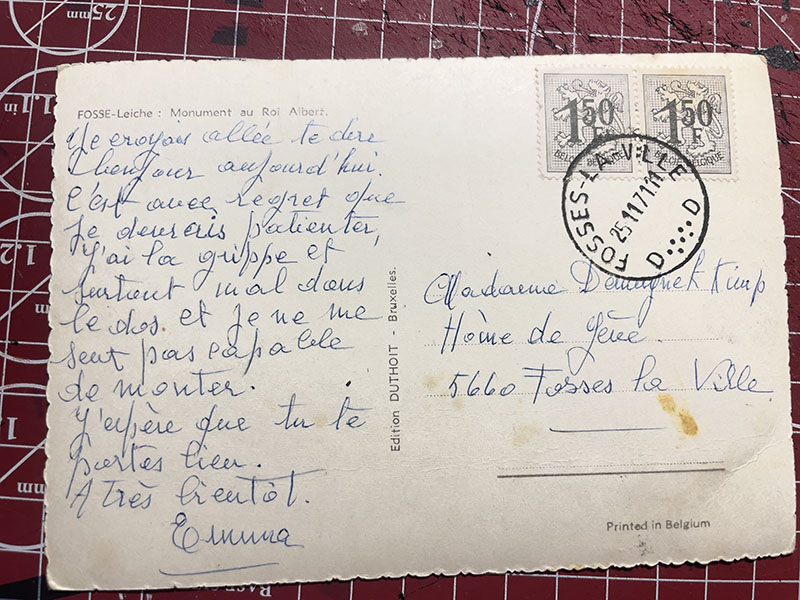 FOSSE-Leiche : Monument au Roi Albert.
Je croyais allée te dire
bonjour aujourd'hui.
C'est avec regret que
je devrais patienter,
j'ai la grippe et
surtout mal dans
le dos. et je ne me
sent pas capable
de monter.
J'espère que tu te
portes bien.
A très bientôt.
Emma
Edition DUTHOIT - Bruxelles.
1,50 F
BELGIE-BELGIQUE
1,50 F
BELGIE-BELGIQUE
FOSSES-LA-VILLE
25 11 71
D D
Madame
Home de
5660 Fosses la Ville
Printed in Belgium
25mm
1.1in
1.2
25mm